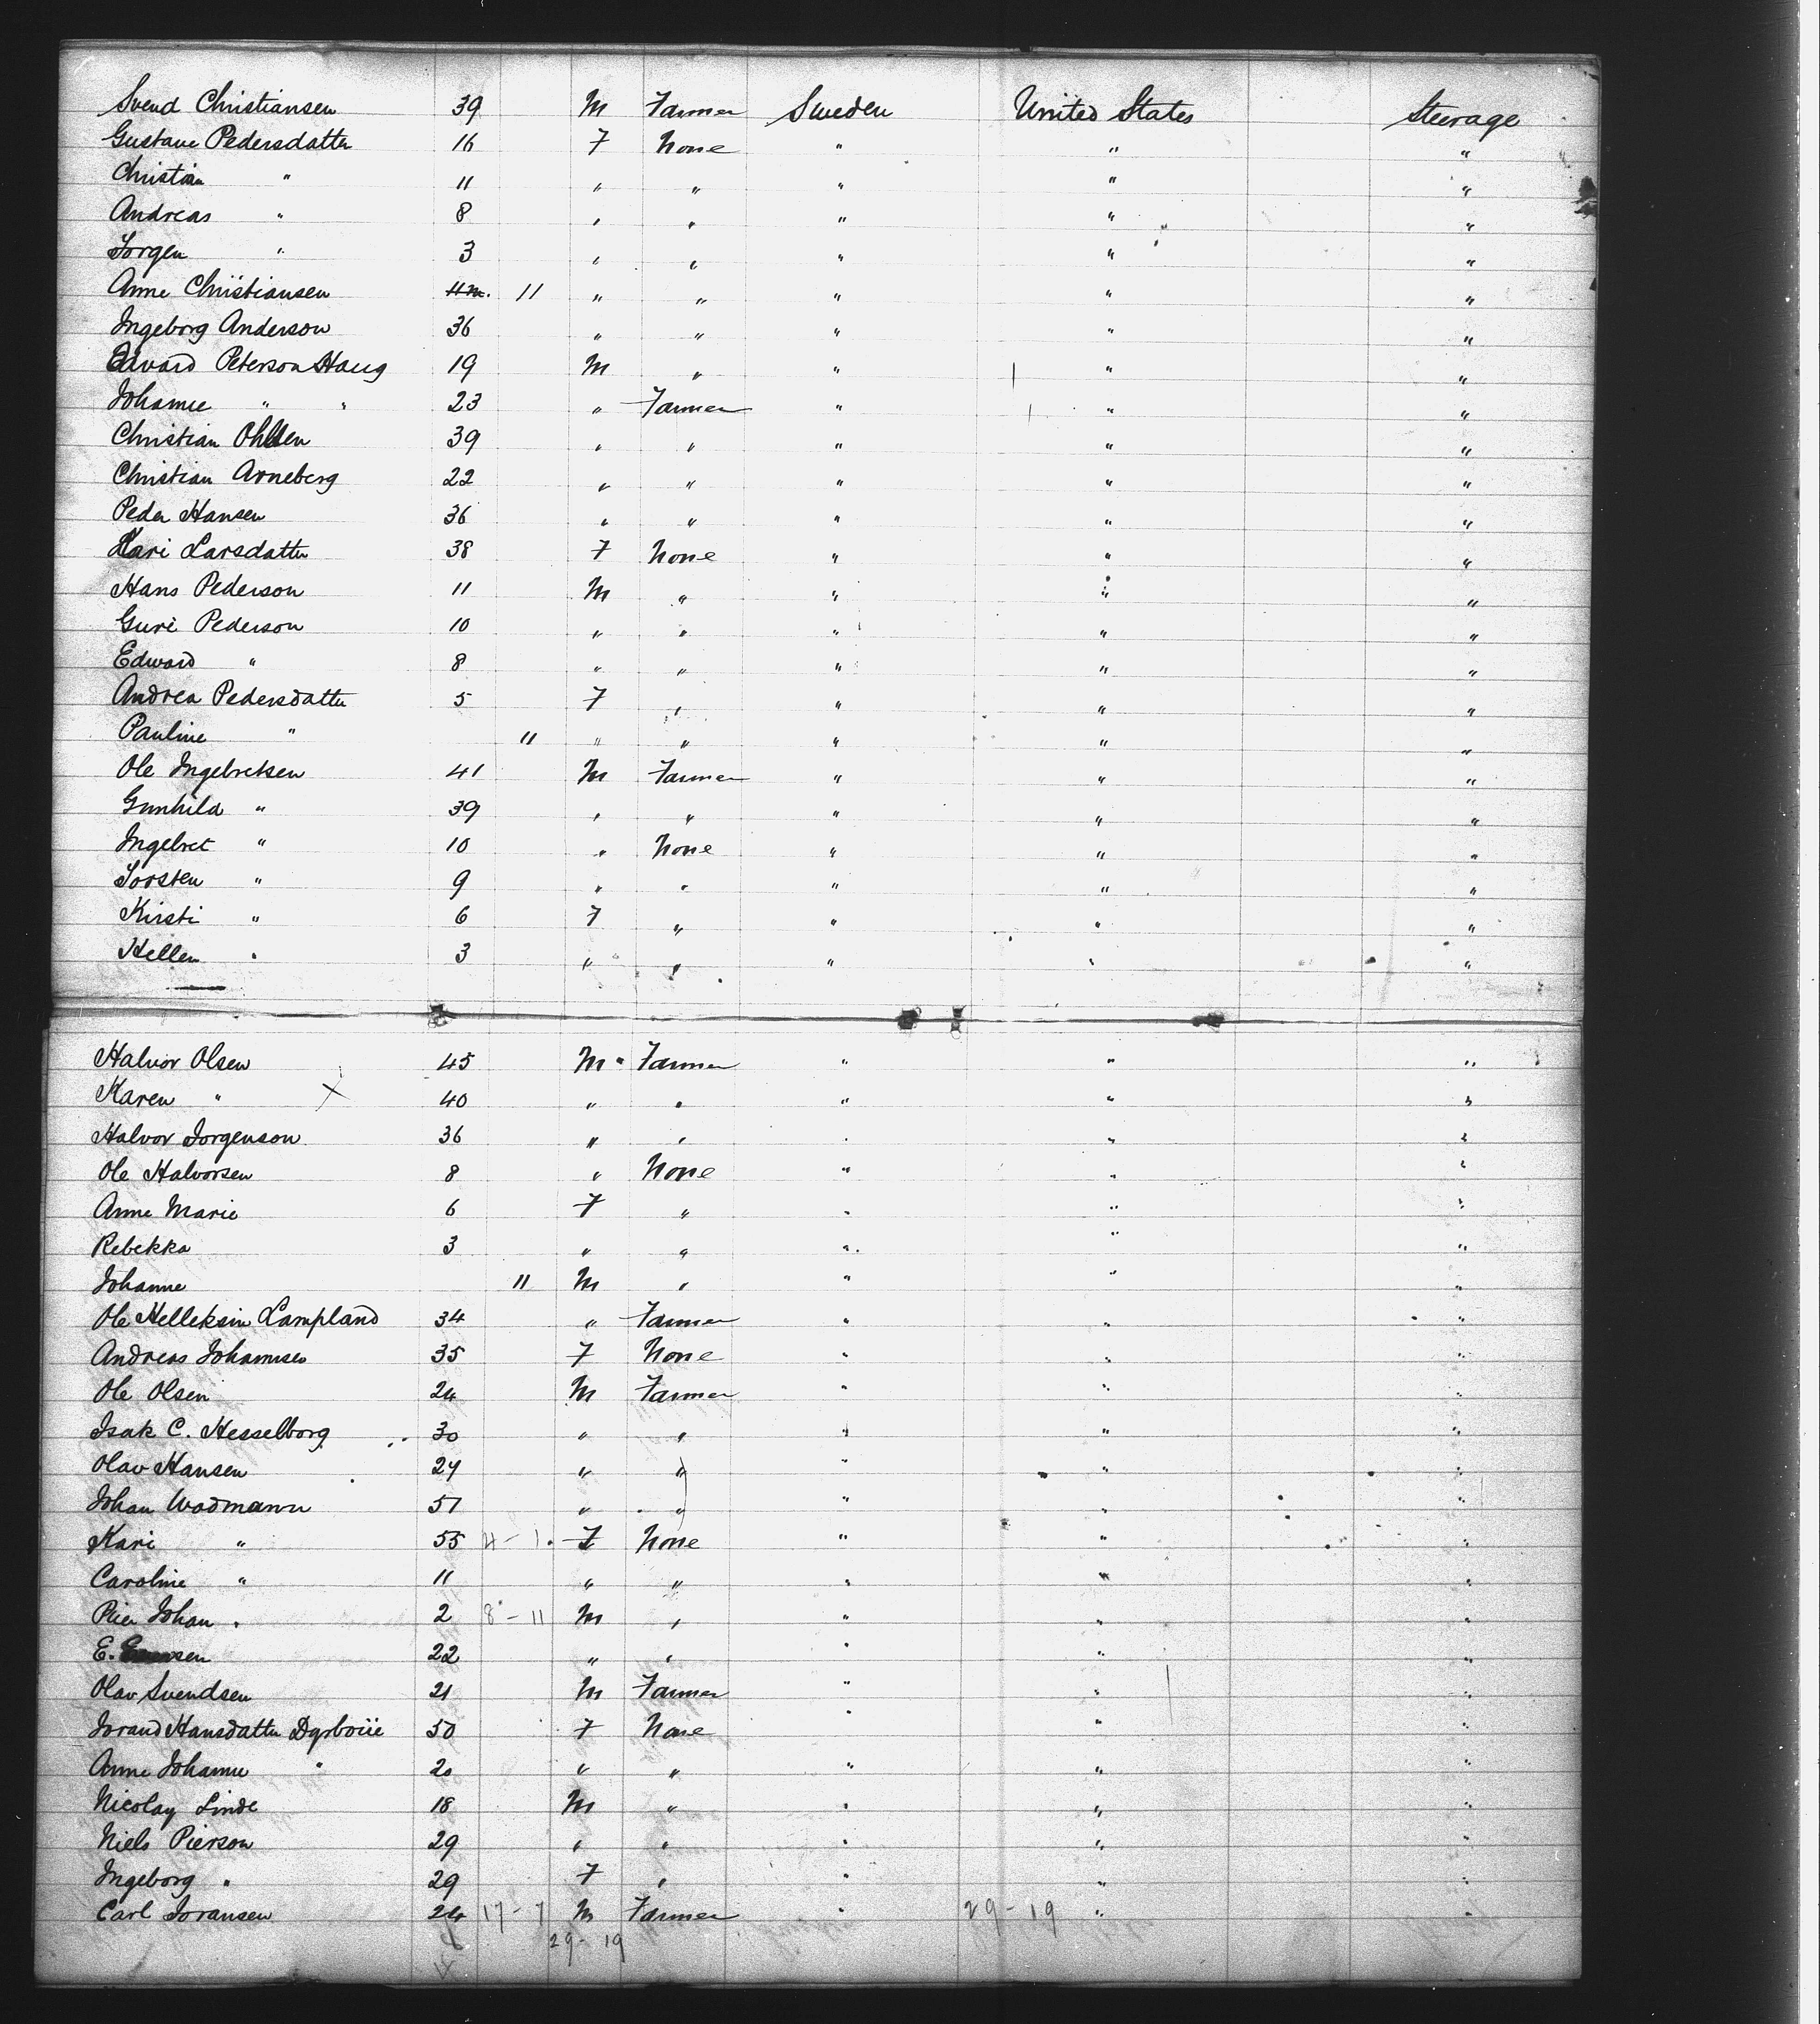 Svend Christiansen 39 M Farmer Sweden United States Steerage
Gustave Pedersdatter 16 F None " " "
Christian " 11 " " " " "
Andreas " 8 " " " " "
Jorgen " 3 " " " " "
Anne Christiansen 11 m. 11 " " " " "
Ingeborg Anderson 36 " " " " "
Edvard Peterson Haug 19 M " " " "
Johanne " " 23 " Farmer " " "
Christian Ohlsen 39 " " " " "
Christian Arneberg 22 " " " " "
Peder Hansen 36 " " " " "
Kari Larsdatter 38 F None " " "
Hans Pederson 11 M " " " "
Guri Pederson 10 " " " " "
Edward " 8 " " " " "
Andrea Pedersdatter 5 F " " " "
Pauline " 11 " " " " "
Ole Ingebretsen 41 M Farmer " " "
Gunhild " 39 " " " " "
Ingebret " 10 " None " " "
Torsten " 9 " " " " "
Kirsti " 6 F " " " "
Hellen " 3 " " " " "
Halvor Olsen 45 M Farmer " " "
Karen " X 40 " " " " "
Halvor Jorgenson 36 " " " " "
Ole Halvorsen 8 " None " " "
Anne Marie 6 F " " " "
Rebekka 3 " " " " "
Johanne 11 M " " " "
Ole Helleksin Lampland 34 " Farmer " " "
Andreas Johannsen 35 F None " " "
Ole Olsen 24 M Farmer " " "
Isak C. Hesselborg 30 " " " " "
Olav Hansen 24 " " " " "
Johan Wodmann 51 " " " " "
Kari " 55 4-1. F None " " "
Caroline " 11 " " " " "
Pier Johan " 2 8-11 M " " " "
E. 22 " " " " "
Olav Svendsen 21 M Farmer " " "
Jorand Hansdatter 50 F None " " "
Anne Johanne " 20 " " " " "
Nicolay Linde 18 M " " " "
Niels Pierson 29 " " " " "
Ingeborg " 29 F " " " "
Carl Joransen 24 17-7 M Farmer " 29-19 " "
29-19